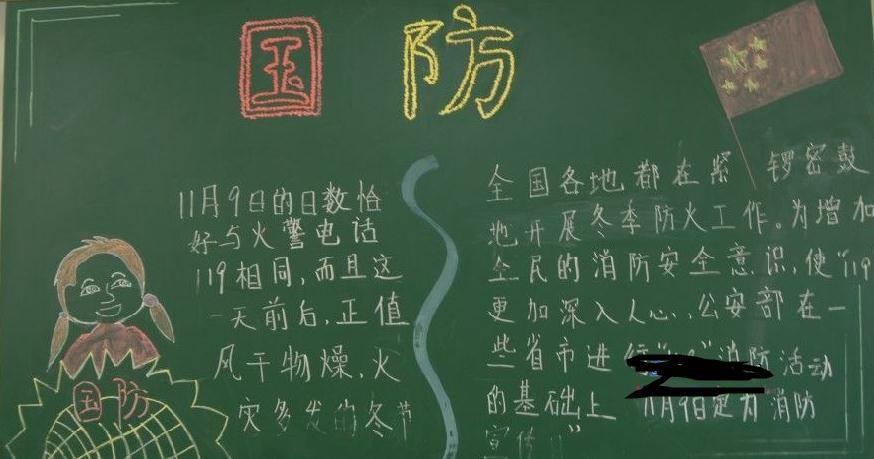 国防
11月9日的日数恰
好与火警电话
119相同,而且这
一天前后,正值
风干物燥,火
灾多发的冬节
国防
全国各地都在紧 锣密鼓
地开展冬季防火工作。为增加
全民的消防安全意识,使"119
更加深入人心,公安部在一
些省市进 消防活动
的基础上 11月9日定为消防
宣传